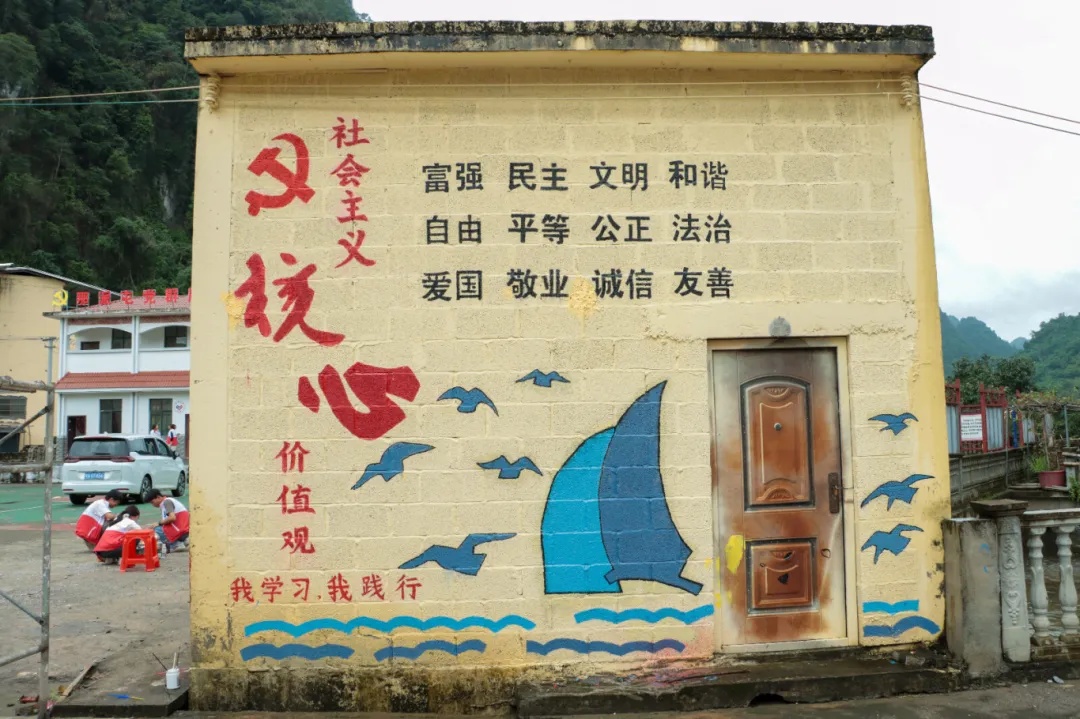 社会主义
核心
价值观
富强 民主 文明 和谐
自由 平等 公正 法治
爱国 敬业 诚信 友善
我学习,我践行